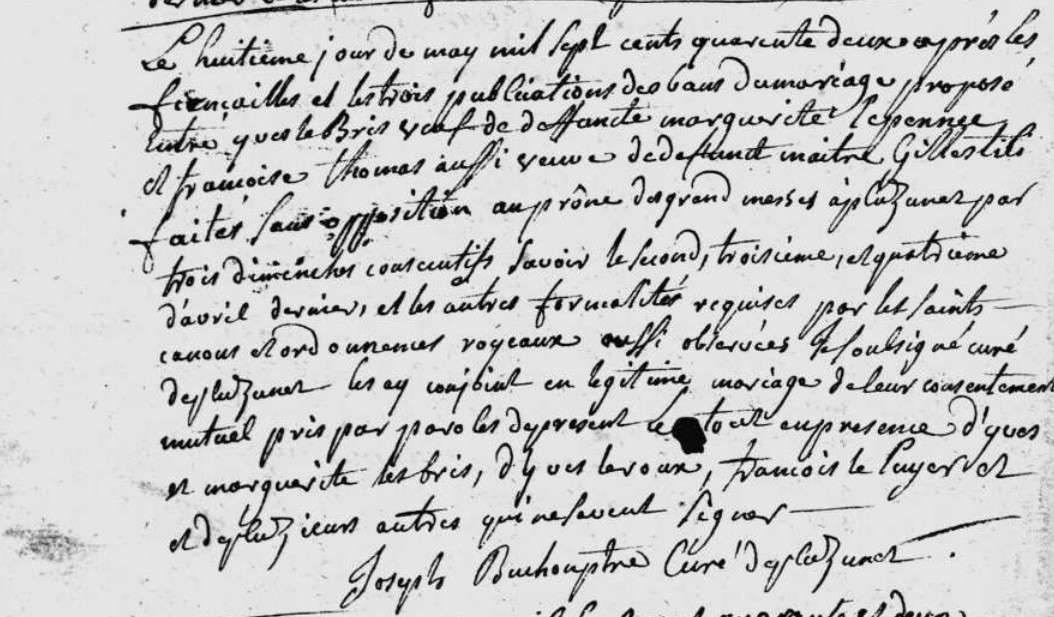 Le huitieme jour de may mil sept cents quarente deux aprés les
fiencailles et les trois publications des bans du mariage proposé
Entre yves le Bris veuf de deffuncte marguerite le pennee
et francoise thomas aussi veuve de defunct maitre Gilles
faites sans opposition au prône des grand messes à pluzunet par
trois dimenches consecutifs savoir le second, troisieme, et quatrieme
d'avril dernier, et les autres formalités requises par les saints
canons et ordonnences royeaux aussi observées Je soubsigné curé
de pluzunet les ay conjoint en legitime mariage de leur consentement
mutuel pris par paroles de present le tout en presence d'yves
et marguerite les bris, d'yves le roux, francois le luyer et
et de pluzieurs autres qui ne savent signer
Joseph Curé de pluzunet .